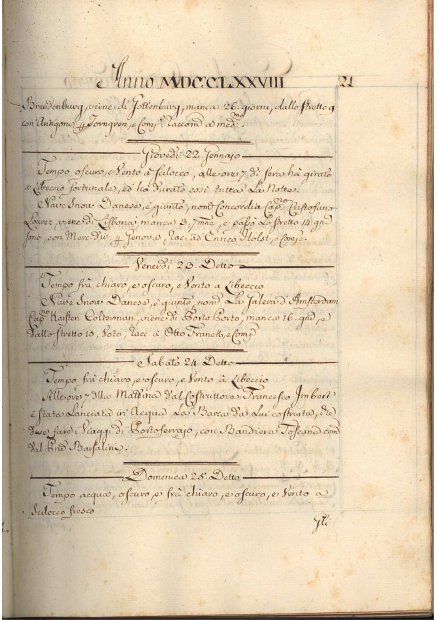 Anno MDCCLXXVIII 21
viene di manca 26 giorni, dallo Stretto 9
con Aringhe
Giovedì 22 Gennajo
Tempo oscuro, e Vento à Scilocco, alle ore 7 di sera hà girato
à Libeccio fortunale, ed hà durato così tutta La Notte
Nave Snow Danese, è giunto, nom.ª Concordia Cap.no Cristofano
viene di Lisbona manca 3. e passò Lo Stretto 14
sono, con Merc.zie p Genova, Rac. ad Enrico Holst, e Comp.
Venerdì 23 Detto
Tempo frà chiaro, e oscuro, e Vento a Libeccio
Nave Snow Danese, è giunto, nom.ª La Galera d'Amsterdam
Cap.no Karsten viene di Porto Porto, manca 16. e
dallo Stretto 10, Racc. à Otto Franck, e Comp.
Sabato 24 Detto
Tempo frà chiaro, e oscuro, e Vento à Libeccio
Alle ore 9 della Mattina dal Costruttore Francesco Imbert
è stata Lanciata in Acqua La Barca da Lui costruita, che
deve fare i Viaggi di Portoferrajo, con Bandiera Toscana
dal
Domenica 25 Detto
Tempo acqua, oscuro, e frà chiaro, e oscuro, e Vento a
Scilocco fresco